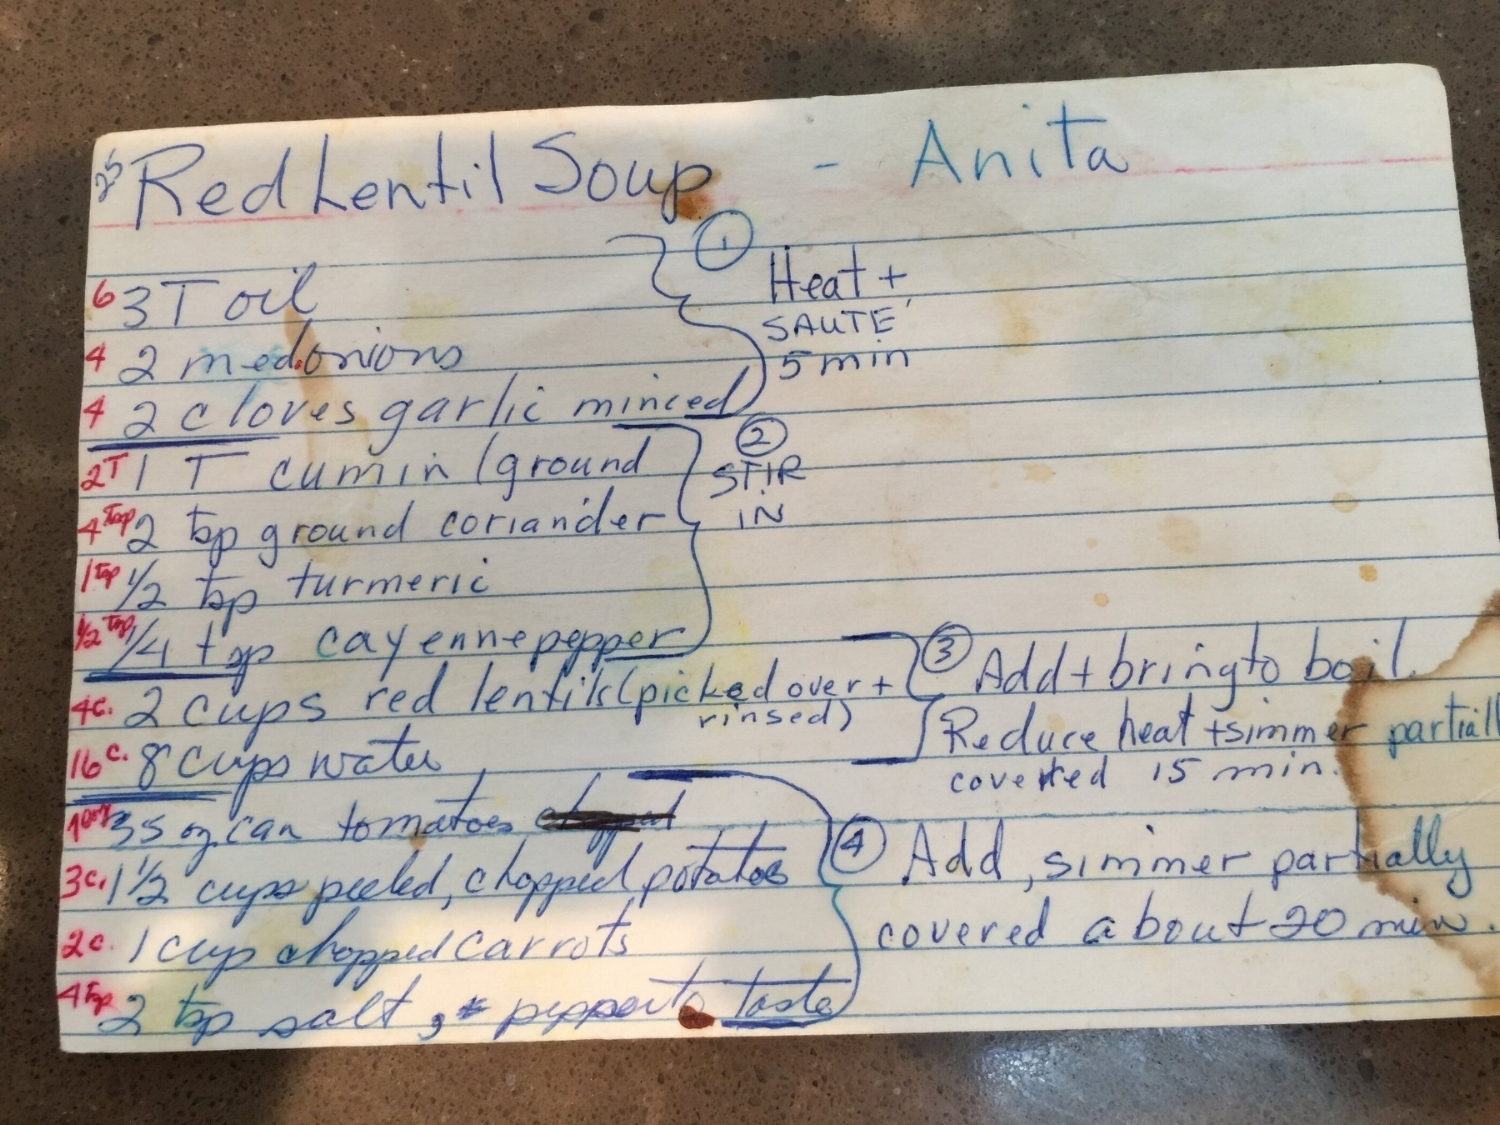 25 Red Lentil Soup - Anita
6 3 T oil
4 2 med onions
4 2 cloves garlic minced
① Heat +
SAUTE
5 min
2T 1 T cumin (ground
4 Tsp 2 tsp ground coriander
1 tsp 1/2 tsp turmeric
1/2 Tsp 1/4 tsp cayenne pepper
② STIR
IN
4c. 2 cups red lentils (picked over +
rinsed)
16 c. 8 cups water
③ Add + bring to boil.
Reduce heat + simmer partiall
covered 15 min.
70oz 35 oz can tomatoes
3c. 1 1/2 cups peeled, chopped potatoes
2c. 1 cup chopped carrots
4 tsp 2 tsp salt, pepper to taste
④ Add, simmer partially
covered about 20 min.